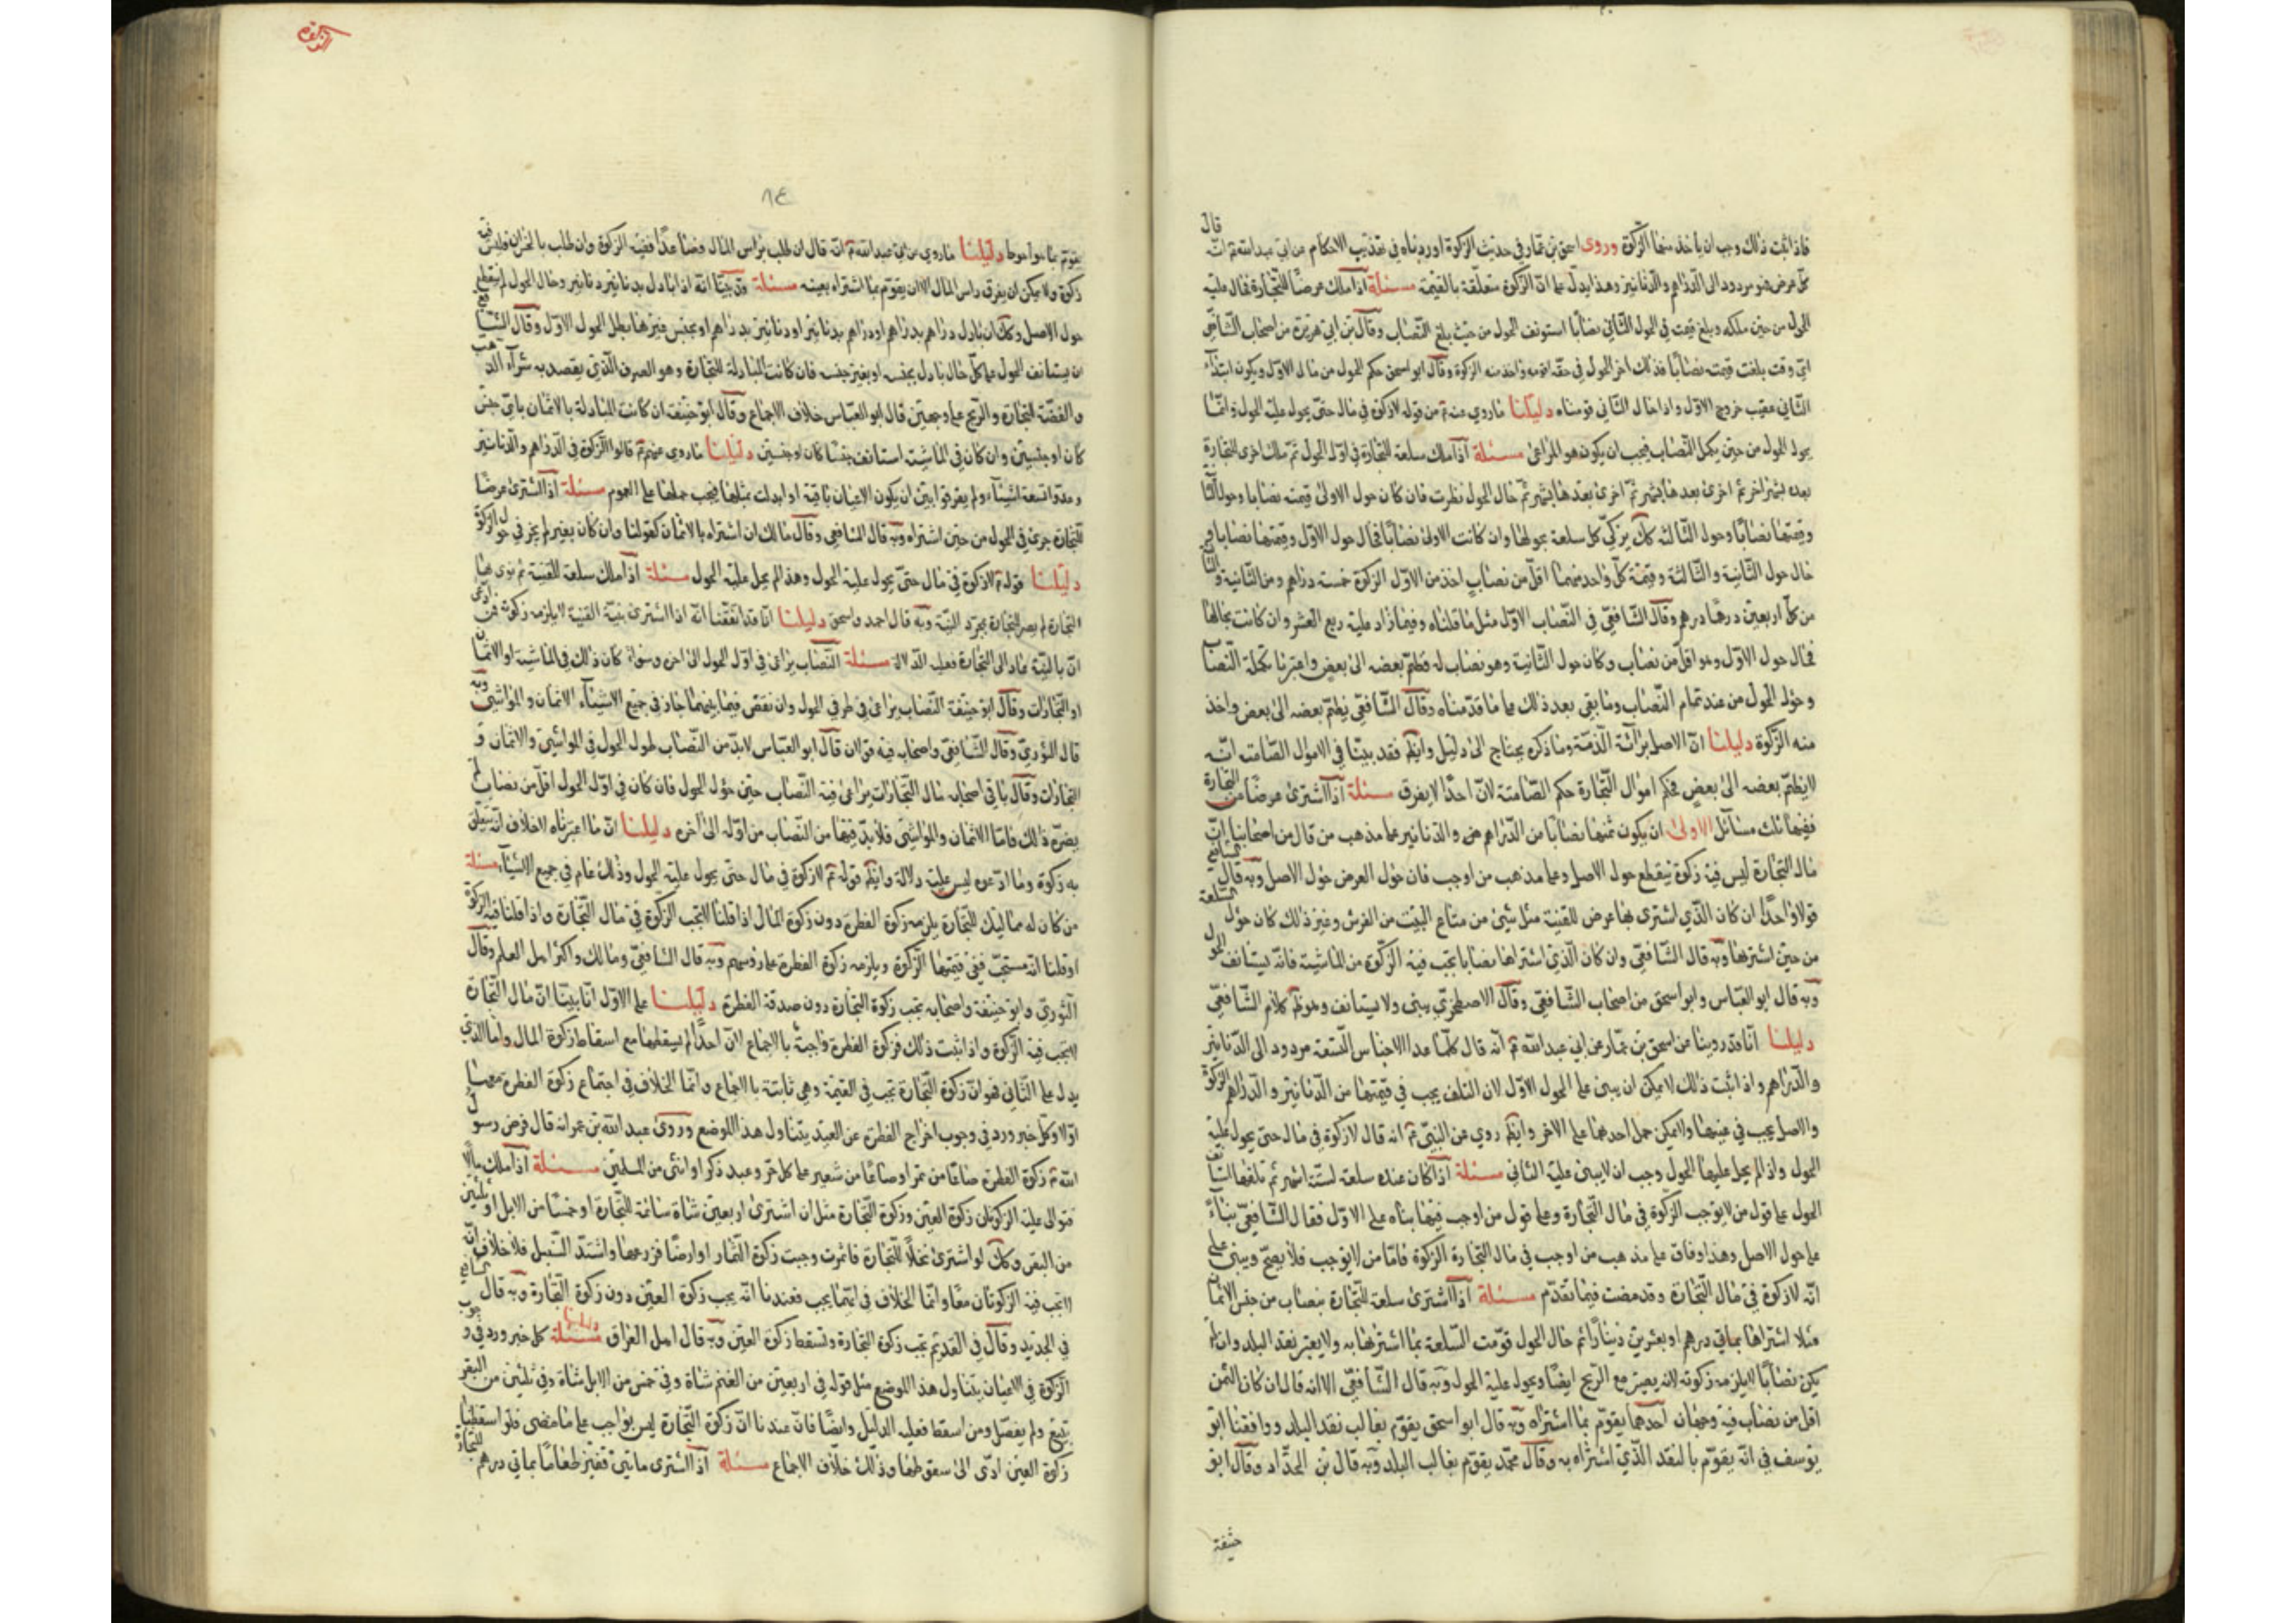 فاذا ثبت ذلك وجب ان ياخذ منها الزكوة وروى اسحق بن عمار في حديث الزكوة اوردناه في تهذيب الاحكام عن ابي عبد الله انه قال
كل عرض فهو مردود الى الدراهم والدنانير وهذا يدل على ان الزكوة متعلقة بالقيمة مسئلة اذا ملك عرضا للتجارة فحال عليه
الحول من حين ملكه وبلغ قيمته في الحول الثاني نصابا استونف الحول من حيث بلغ النصاب وقال بن ابي هريرة من اصحاب الشافعي
اي وقت بلغت قيمته نصابا فذلك اخر الحول في حقه قومه واخذ منه الزكوة وقال ابو اسحق حكم الحول من مال الاول ويكون ابتداء
الثاني عقيب خروج الاول واذا حال الثاني قومناه دليلنا ما روي عنه من قوله لا زكوة في مال حتى يحول عليه الحول وانما
يحول الحول من حين يكمل النصاب فيجب ان يكون هو المراعى مسئلة اذا ملك سلعة للتجارة في اول الحول ثم ملك اخرى للتجارة
بعده بشهر اخر ثم اخرى بعدها بشهر ثم اخرى بعدها بشهر ثم حال الحول نظرت فان كان حول الاولى قيمته نصابا وحول
وقيمتها نصابا وحول الثالثة كك يزكى كل سلعة بحولها وان كانت الاولى نصابا فحال حول الاول وقيمتها نصابا
حال حول الثانية والثالثة وقيمة كل واحد منهما اقل من نصاب اخذ من الاول الزكوة خمسة دراهم ومن الثانية و
من كل اربعين درهما درهم وقال الشافعي في النصاب الاول مثل ما قلناه وفيما زاد عليه ربع العشر وان كانت بحالها
فحال حول الاول وهو اقل من نصاب وكان حول الثانية وهو نصاب له فطم بعضه الى بعض واعتبرنا تكملة النصاب
وحول الحول من عند تمام النصاب وما بقي بعد ذلك على ما قدمناه وقال الشافعي نظم بعضه الى بعض واخذ
منه الزكوة دليلنا ان الاصل براءة الذمة وما ذكره يحتاج الى دليل وايظم فقد بينا في الاموال الصامتة انه
لا يظم بعضه الى بعض فحكم اموال التجارة حكم الصامتة لان احدا لا يفرق مسئلة اذا اشترى عرضا من التجارة
ففيها ثلث مسائل الاولى ان يكون ثمنها نصابا من الدراهم والدنانير على مذهب من قال من اصحابنا ان
مال التجارة ليس فيه زكوة ينقطع حول الاصل وعلى مذهب من اوجب فان حول العرض حول الاصل وبه قال الشافعي
قولا واحدا ان كان الذي اشترى بها عرض للقنية مثل شئ من متاع البيت من الفرش وغير ذلك كان حول السلعة
من حين اشتراها وبه قال الشافعي وان كان الذي اشتراها نصابا تجب فيه الزكوة من الماشية فانه يستانف الحول
وبه قال ابو العباس وابو اسحق من اصحاب الشافعي وقال الاصطخري يبنى ولا يستانف وهو ظم كلام الشافعي
دليلنا انا قد روينا عن اسحق بن عمار عن ابي عبد الله انه قال كلما عدا الاجناس التسعة مردود الى الدنانير
والدراهم واذا ثبت ذلك لا يمكن ان يبنى على الحول الاول لان التلف يجب في قيمتها من الدنانير والدراهم الزكوة
والاصل يجب في عينها ولا يمكن حمل احدهما على الاخر وايظم روي عن النبي انه قال لا زكوة في مال حتى يحول عليه
الحول واذا لم يحل عليهما الحول وجب ان لا يبنى عليه الثاني مسئلة اذا كان عنده سلعة لستة اشهر ثم
الحول على قول من لا يوجب الزكوة في مال التجارة وعلى قول من اوجب فيها بناه على الاول فقال الشافعي بناء
على حول الاصل وهذا وفاق على مذهب من اوجب في مال التجارة الزكوة فاما من لا يوجب فلا يصح ويبنى على
انه لا زكوة في مال التجارة وقد مضت فيما تقدم مسئلة اذا اشترى سلعة للتجارة بنصاب من جنس الاثمان
مثلا اشتراها بماتي درهم او بعشرين دينارا ثم حال الحول قومت السلعة بما اشتراها به ولا يعتبر نقد البلد وان لم
يكن نصابا لا يلزمه زكوته لانه يعتبر مع الربح ايضا ويحول عليه الحول وبه قال الشافعي الا انه قال ان كان الثمن
اقل من نصاب فيه وجهان احدهما يقوم بما اشتراه وبه قال ابو اسحق يقوم بغالب نقد البلد ووافقنا ابو
يوسف في انه يقوم بالنقد الذي اشتراه به وقال محمد يقوم بغالب البلد وبه قال بن الحداد وقال ابو
حنيفة
الزكوة
٨٤
دليلنا ما روي عن ابي عبد الله انه قال ان طلب براس المال فصاعدا ففيه الزكوة وان طلب بالخسران فليس فيه
زكوة ولا يمكن ان يعرف راس المال الا ان يقوم بما اشتراه بعينه مسئلة وقد بينا انه اذا بادل بدنانير دنانير وحال الحول لم ينقطع
حول الاصل وكك ان بادل دراهم بدراهم او دراهم بدنانير او دنانير بدراهم او بجنس غيرها بطل الحول الاول وقال الشافعي
ان يستانف الحول على كل حال بادل بجنسه او بغير جنسه فان كانت المبادلة للتجارة وهو الصرف الذي يقصد به شراء الذهب
والفضة للتجارة والربح على وجهين قال ابو العباس خلاف الاجماع وقال ابو حنيفة ان كانت المبادلة بالاثمان باي جنس
كان او جنسين وان كان في الماشية استانف جنسا كان او جنسين دليلنا ما روي عنهم قالوا الزكوة في الدراهم والدنانير
وعدوا تسعة اشياء ولم يفرقوا بين ان يكون الاعيان باقية او ابدلت بمثلها فيجب حملها على العموم مسئلة اذا اشترى عرضا
للتجارة جرى في الحول من حين اشتراه وبه قال الشافعي وقال مالك ان اشتراه بالاثمان كقولنا وان كان بغير لم يجر في حول الزكوة
دليلنا قوله لا زكوة في مال حتى يحول عليه الحول وهذا لم يحل عليه الحول مسئلة اذا ملك سلعة للقنية ثم نوى بها
التجارة لم يصر للتجارة بمجرد النية وبه قال احمد واسحق دليلنا انا قد اتفقنا انه اذا اشترى بنية القنية لا يلزمه زكوته فمن ادعى
ان بالنية عاد الى التجارة فعليه الدلالة مسئلة النصاب يراعى في اول الحول الى اخره وسواء كان ذلك في الماشية او الاثمان
او التجارات وقال ابو حنيفة النصاب يراعى في طرفي الحول وان نقص فيما بينهما جاز في جميع الاشياء الاثمان والمواشي وبه
قال الثوري وقال الشافعي واصحابه فيه قولان قال ابو العباس لابد من النصاب طول الحول في المواشي والاثمان و
التجارات وقال باقي اصحابه مال التجارات يراعى فيه النصاب حين حؤل الحول فان كان في اول الحول اقل من نصاب لم
يضره ذلك فاما الاثمان والمواشي فلابد فيها من النصاب من اوله الى اخره دليلنا ان ما اعتبرناه لا خلاف انه يتعلق
به زكوة وما ادعوه ليس عليه دلالة وايظم قوله لا زكوة في مال حتى يحول عليه الحول وذلك عام في جميع الاشياء مسئلة
من كان له مماليك للتجارة يلزمه زكوة الفطرة دون زكوة المال اذا قلنا لا تجب الزكوة في مال التجارة واذا قلنا فيه الزكوة
او قلنا انه مستحب ففي قيمتها الزكوة ويلزمه زكوة الفطرة على رؤسهم وبه قال الشافعي ومالك واكثر اهل العلم وقال
الثوري وابو حنيفة واصحابه تجب زكوة التجارة دون صدقة الفطرة دليلنا على الاول انا بينا ان مال التجارة
لا تجب فيه الزكوة واذا ثبت ذلك فزكوة الفطرة واجبة بالاجماع لان احدا لم يسقطها مع اسقاط زكوة المال واما الذي
يدل على الثاني فهو ان زكوة التجارة تجب في القيمة وهي ثابتة بالاجماع وانما الخلاف في اجتماع زكوة الفطرة معها
اولا وكل خبر ورد في وجوب اخراج الفطرة عن العبد يتناول هذا الموضع وروى عبد الله بن عمر انه قال فرض رسول
الله زكوة الفطرة صاعا من تمر او صاعا من شعير على كل حر وعبد ذكر او انثى من المسلمين مسئلة اذا ملك مالا
فتوالى عليه الزكوتان زكوة العين وزكوة التجارة مثل ان اشترى اربعين شاة سائمة للتجارة او خمسا من الابل او ثلثين
من البقر وكك لو اشترى نخلا للتجارة فاثمرت وجبت زكوة الثمار او ارضا فزرعها واشتد السنبل فلا خلاف انه
لا تجب فيه الزكوتان معا وانما الخلاف في ايتهما يجب فعندنا انه يجب زكوة العين دون زكوة التجارة وبه قال الشافعي
في الجديد وقال في القديم تجب زكوة التجارة وتسقط زكوة العين وبه قال اهل العراق مسئلة دليلنا كل خبر ورد في وجوب
الزكوة في الاعيان يتناول هذا الموضع مثل قوله في اربعين من الغنم شاة وفي خمس من الابل شاة وفي ثلثين من البقر
تبيع ولم يفصل ومن اسقط فعليه الدليل وايضا فان عندنا ان زكوة التجارة ليس بواجب على ما مضى فلو اسقطنا
زكوة العين ادى الى سقوطهما وذلك خلاف الاجماع مسئلة اذا اشترى ماتين قفيز طعاما بماتي درهم للتجارة